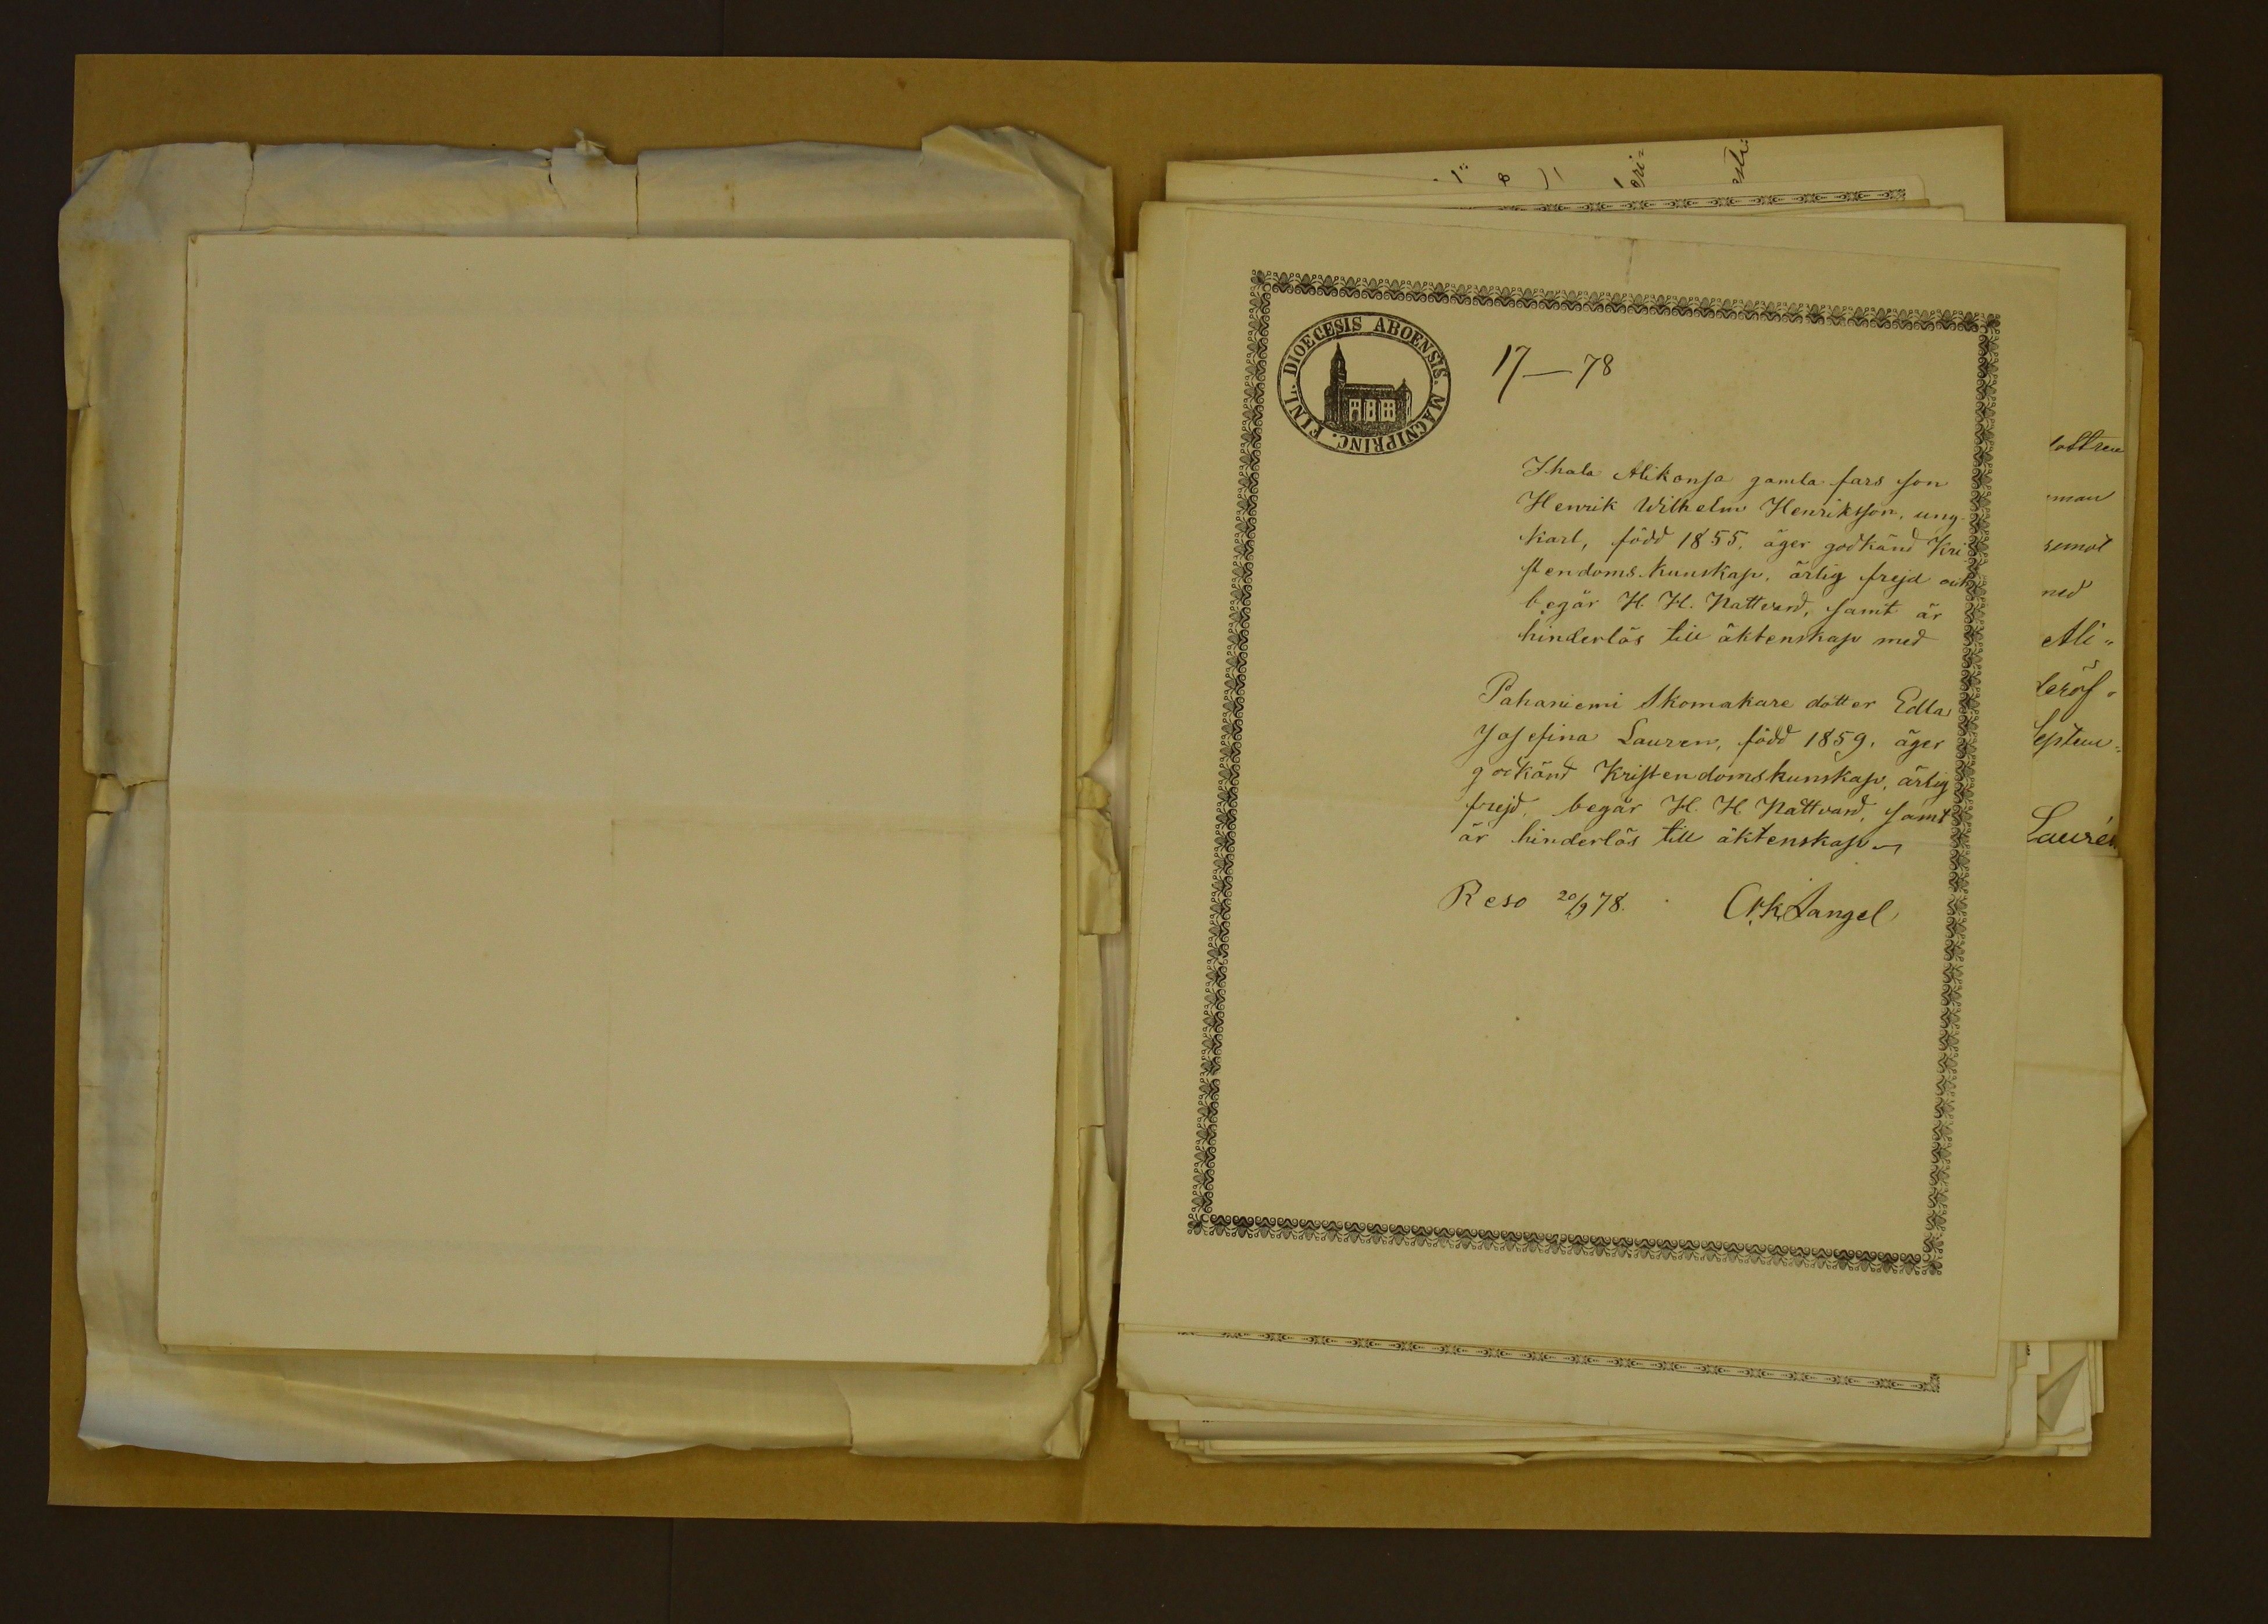 DIOECESIS ABOENSIS. MAGNIPRINC. FINL.
17—78
Ihala Alikonsa gamla fars son
Henrik Wilhelm Henriksson, ung-
karl, född 1855, äger godkänd Kri
stendoms-kunskap, ärlig frejd och
begär H. H. Nattvard, samt är
hinderlös till äktenskap med
Pahaniemi Skomakare dotter Edla
Josefina Lauren, född 1859, äger
godkänd Kristendomskunskap, ärlig
frejd, begär H. H Nattvard, samt
är hinderlös till äktenskap
Reso 20/9 78.
Langel
man
ned
Ali"
Septem"
Laurén